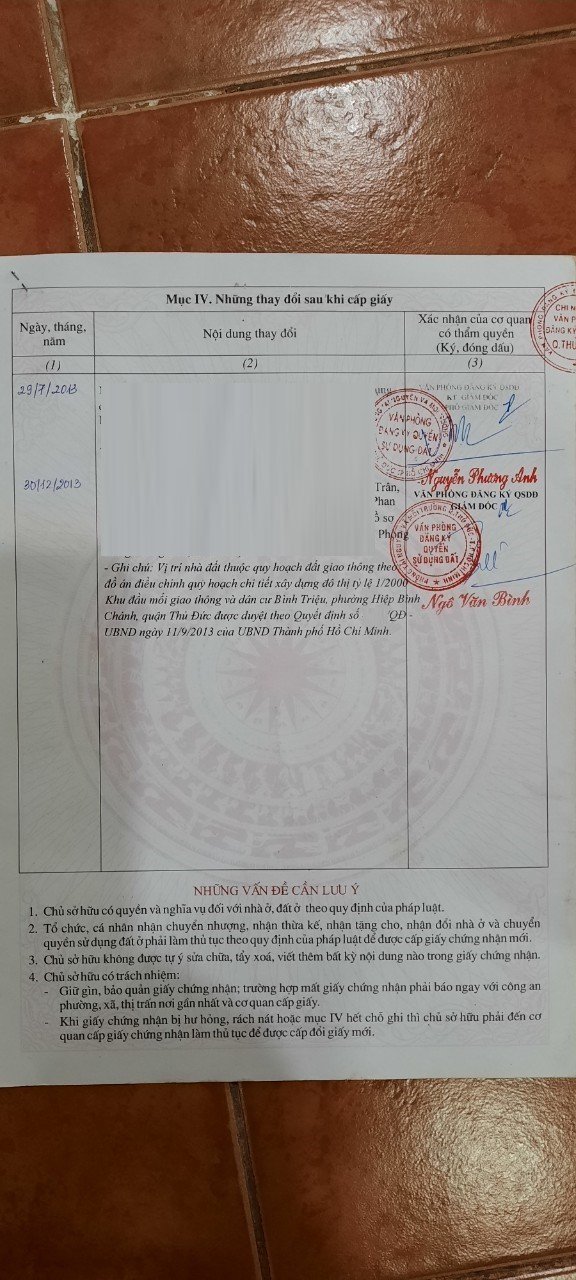 Mục IV. Những thay đổi sau khi cấp giấy
Ngày, tháng, năm
Nội dung thay đổi
Xác nhận của cơ quan có thẩm quyền
(Ký, đóng dấu)
(1)
(2)
(3)
29/7/2013
VĂN PHÒNG ĐĂNG KÝ QSDĐ
KT. GIÁM ĐỐC
PHÓ GIÁM ĐỐC
VĂN PHÒNG
ĐĂNG KÝ QUYỀN
SỬ DỤNG ĐẤT
Nguyễn Phương Anh
30/12/2013
Trân,
Phan
sơ
Phòng
VĂN PHÒNG ĐĂNG KÝ QSDĐ
GIÁM ĐỐC
VĂN PHÒNG
ĐĂNG KÝ
QUYỀN
SỬ DỤNG ĐẤT
Ngô Văn Bình
- Ghi chú: Vị trí nhà đất thuộc quy hoạch đất giao thông theo
đồ án điều chỉnh quy hoạch chi tiết xây dựng đô thị tỷ lệ 1/2000
Khu đầu mối giao thông và dân cư Bình Triệu, phường Hiệp Bình
Chánh, quận Thủ Đức được duyệt theo Quyết định số QĐ -
UBND ngày 11/9/2013 của UBND Thành phố Hồ Chí Minh.
NHỮNG VẤN ĐỀ CẦN LƯU Ý
1. Chủ sở hữu có quyền và nghĩa vụ đối với nhà ở, đất ở theo quy định của pháp luật.
2. Tổ chức, cá nhân nhận chuyển nhượng, nhận thừa kế, nhận tặng cho, nhận đổi nhà ở và chuyển
quyền sử dụng đất ở phải làm thủ tục theo quy định của pháp luật để được cấp giấy chứng nhận mới.
3. Chủ sở hữu không được tự ý sửa chữa, tẩy xoá, viết thêm bất kỳ nội dung nào trong giấy chứng nhận.
4. Chủ sở hữu có trách nhiệm:
- Giữ gìn, bảo quản giấy chứng nhận; trường hợp mất giấy chứng nhận phải báo ngay với công an
phường, xã, thị trấn nơi gần nhất và cơ quan cấp giấy.
- Khi giấy chứng nhận bị hư hỏng, rách nát hoặc mục IV hết chỗ ghi thì chủ sở hữu phải đến cơ
quan cấp giấy chứng nhận làm thủ tục để được cấp đổi giấy mới.